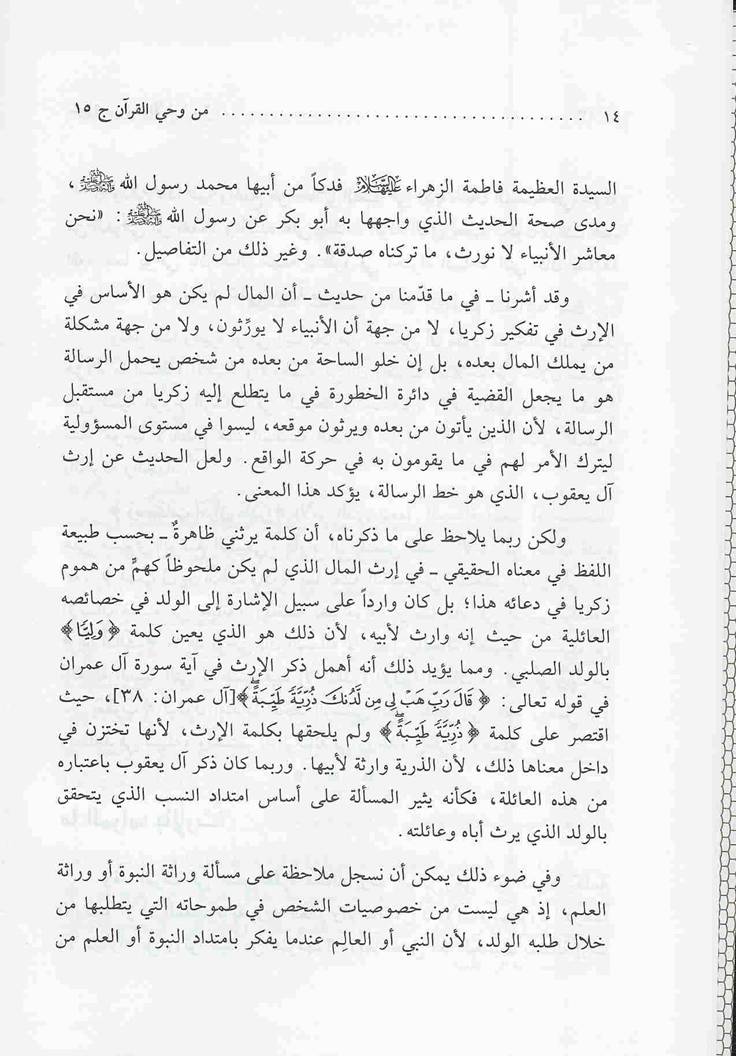 ١٤ ...................................... من وحي القرآن ج ١٥
السيدة العظيمة فاطمة الزهراء عليها السلام فدكاً من أبيها محمد رسول الله ﷺ ،
ومدى صحة الحديث الذي واجهها به أبو بكر عن رسول الله ﷺ : «نحن
معاشر الأنبياء لا نورث، ما تركناه صدقة». وغير ذلك من التفاصيل.
وقد أشرنا ـ في ما قدّمنا من حديث ـ أن المال لم يكن هو الأساس في
الإرث في تفكير زكريا، لا من جهة أن الأنبياء لا يورِّثون، ولا من جهة مشكلة
من يملك المال بعده، بل إن خلو الساحة من بعده من شخص يحمل الرسالة
هو ما يجعل القضية في دائرة الخطورة في ما يتطلع إليه زكريا من مستقبل
الرسالة، لأن الذين يأتون من بعده ويرثون موقعه، ليسوا في مستوى المسؤولية
ليترك الأمر لهم في ما يقومون به في حركة الواقع. ولعل الحديث عن إرث
آل يعقوب، الذي هو خط الرسالة، يؤكد هذا المعنى.
ولكن ربما يلاحظ على ما ذكرناه، أن كلمة يرثني ظاهرةٌ ـ بحسب طبيعة
اللفظ في معناه الحقيقي ـ في إرث المال الذي لم يكن ملحوظاً كهمٍّ من هموم
زكريا في دعائه هذا؛ بل كان وارداً على سبيل الإشارة إلى الولد في خصائصه
العائلية من حيث إنه وارث لأبيه، لأن ذلك هو الذي يعين كلمة ﴿وَلِيًّا﴾
بالولد الصلبي. ومما يؤيد ذلك أنه أهمل ذكر الإرث في آية سورة آل عمران
في قوله تعالى: ﴿قَالَ رَبِّ هَبْ لِي مِن لَّدُنكَ ذُرِّيَّةً طَيِّبَةً﴾[آل عمران: ٣٨]، حيث
اقتصر على كلمة ﴿ذُرِّيَّةً طَيِّبَةً﴾ ولم يلحقها بكلمة الإرث، لأنها تختزن في
داخل معناها ذلك، لأن الذرية وارثة لأبيها. وربما كان ذكر آل يعقوب باعتباره
من هذه العائلة، فكأنه يثير المسألة على أساس امتداد النسب الذي يتحقق
بالولد الذي يرث أباه وعائلته.
وفي ضوء ذلك يمكن أن نسجل ملاحظة على مسألة وراثة النبوة أو وراثة
العلم، إذ هي ليست من خصوصيات الشخص في طموحاته التي يتطلبها من
خلال طلبه الولد، لأن النبي أو العالِم عندما يفكر بامتداد النبوة أو العلم من